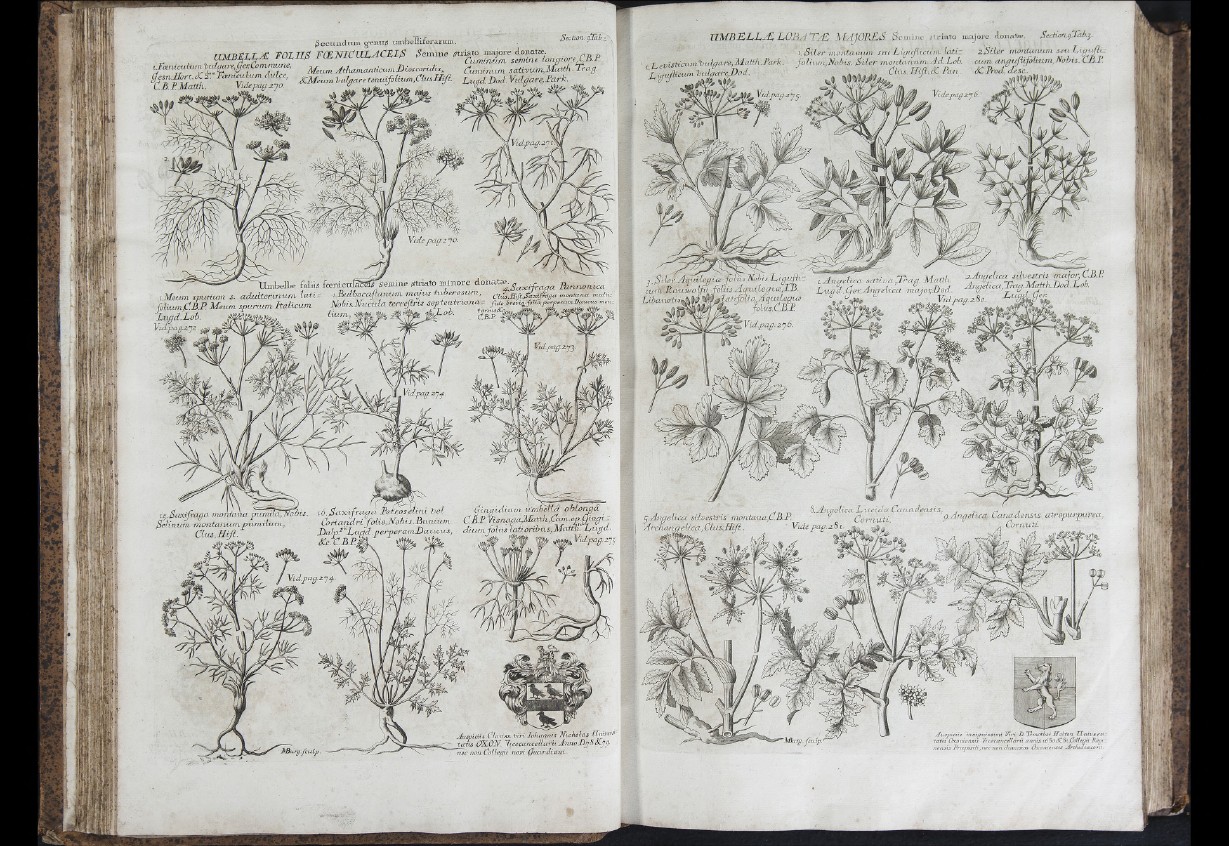 Secundum genus umbelliferarum.
Section. 9 Tab. 2
UMBELLÆ FOLIIS FŒNICULACEIS Semine striato majore donatæ.
1. Fœniculum vulgare, Ger. Commune,
Gesn. Hort. & 2 Fœniculum dulce,
C.B.P. Matth. Vide pag. 270
Meum Athamanticum Dioscoridis,
& Meum vulgare tenuifolium, Clus. Hist.
Cuminum semine longiore C.B.P.
Cuminum sativum, Matth. Trag.
Lugd. Dod. Vulgare, Park.
Vid. pag. 271
Vide pag. 270
Umbellæ foliis fœniculaceis semine striato minore donatæ
Meum spurium s. adulterinum lati-
folium, C.B.P. Meum alterum Italicum
Lugd. Lob.
Vid. pag. 272
Bulbocastanum majus tuberosum,
Nobis. Nucula terrestris septentriona-
lium, Lob.
Saxifraga Pannonica
Clus. Hist.
C.B.P.
Vid. pag. 273
Vid. pag. 274
Saxifraga montana pumila, Nobis.
Selinum montanum pumilum,
Clus. Hist.
10. Saxifraga Petroselini vel
Coriandri folio, Nobis. Bunium
Dalep. Lugd. perperam Daucus,
&c. C.B.P.
Gingidium umbella oblonga
C.B.P. Visnaga, Matth.
foliis latioribus, Matth. Lugd.
Vid. pag. 275
Vid. pag. 274
MBurg. sculp.
Auspiciis Clariss. viri Johannis Nicholas Univer-
tatis OXON. Vicecancellarii Anno
nec non Collegii novi Guardiani.
UMBELLÆ LOBATÆ MAJORES Semine striato majore donatæ. Section. 9 Tab. 3
1. Levisticum vulgare, Matth. Park.
Ligusticum vulgare, Dod.
Vid. pag. 275
1. Siler montanum seu Ligusticum lati-
folium, Nobis. Siler montanum, Ad. Lob.
Clus. Hist. & Pan
2. Siler montanum seu Ligusti-
cum angustifolium, Nobis. C.B.P.
& Prod. desc.
Vide pag. 276
3. Siler Aquilegiæ foliis Nobis. Ligusti-
foliis Aquilegiæ, I.B.
Libanotis latifolia, Aquilegiæ
folio, C.B.P.
Vid. pag. 276.
1. Angelica sativa, Trag. Matth.
Lugd. Ger. Angelica major, Dod.
Vid. pag. 280
2. Angelica silvestris major, C.B.P.
Angelica, Trag. Matth. Dod. Lob.
Lugd. Ger.
5. Angelica silvestris montana, C.B.P.
Archangelica, Clus. Hist.
Vide pag. 281
8. Angelica Lucida Canadensis,
Cornuti.
9. Angelica Canadensis atropurpurea,
Cornuti.
MBurg. sculp.